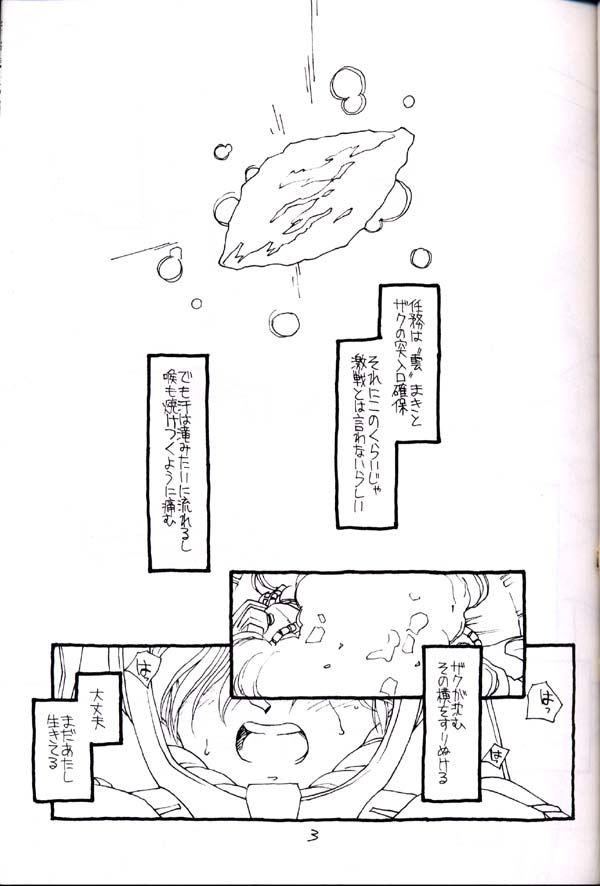 任務は〝雲〟まきと
ザクの突入口確保
それにこのくらいじゃ
激戦とは言わないらしい
でも汗は滝みたいに流れるし
喉も焼けつくように痛む
ザクが沈む
その横をすりぬける
はっ
はっ
はっ
大丈夫
まだあたし
生きてる
3